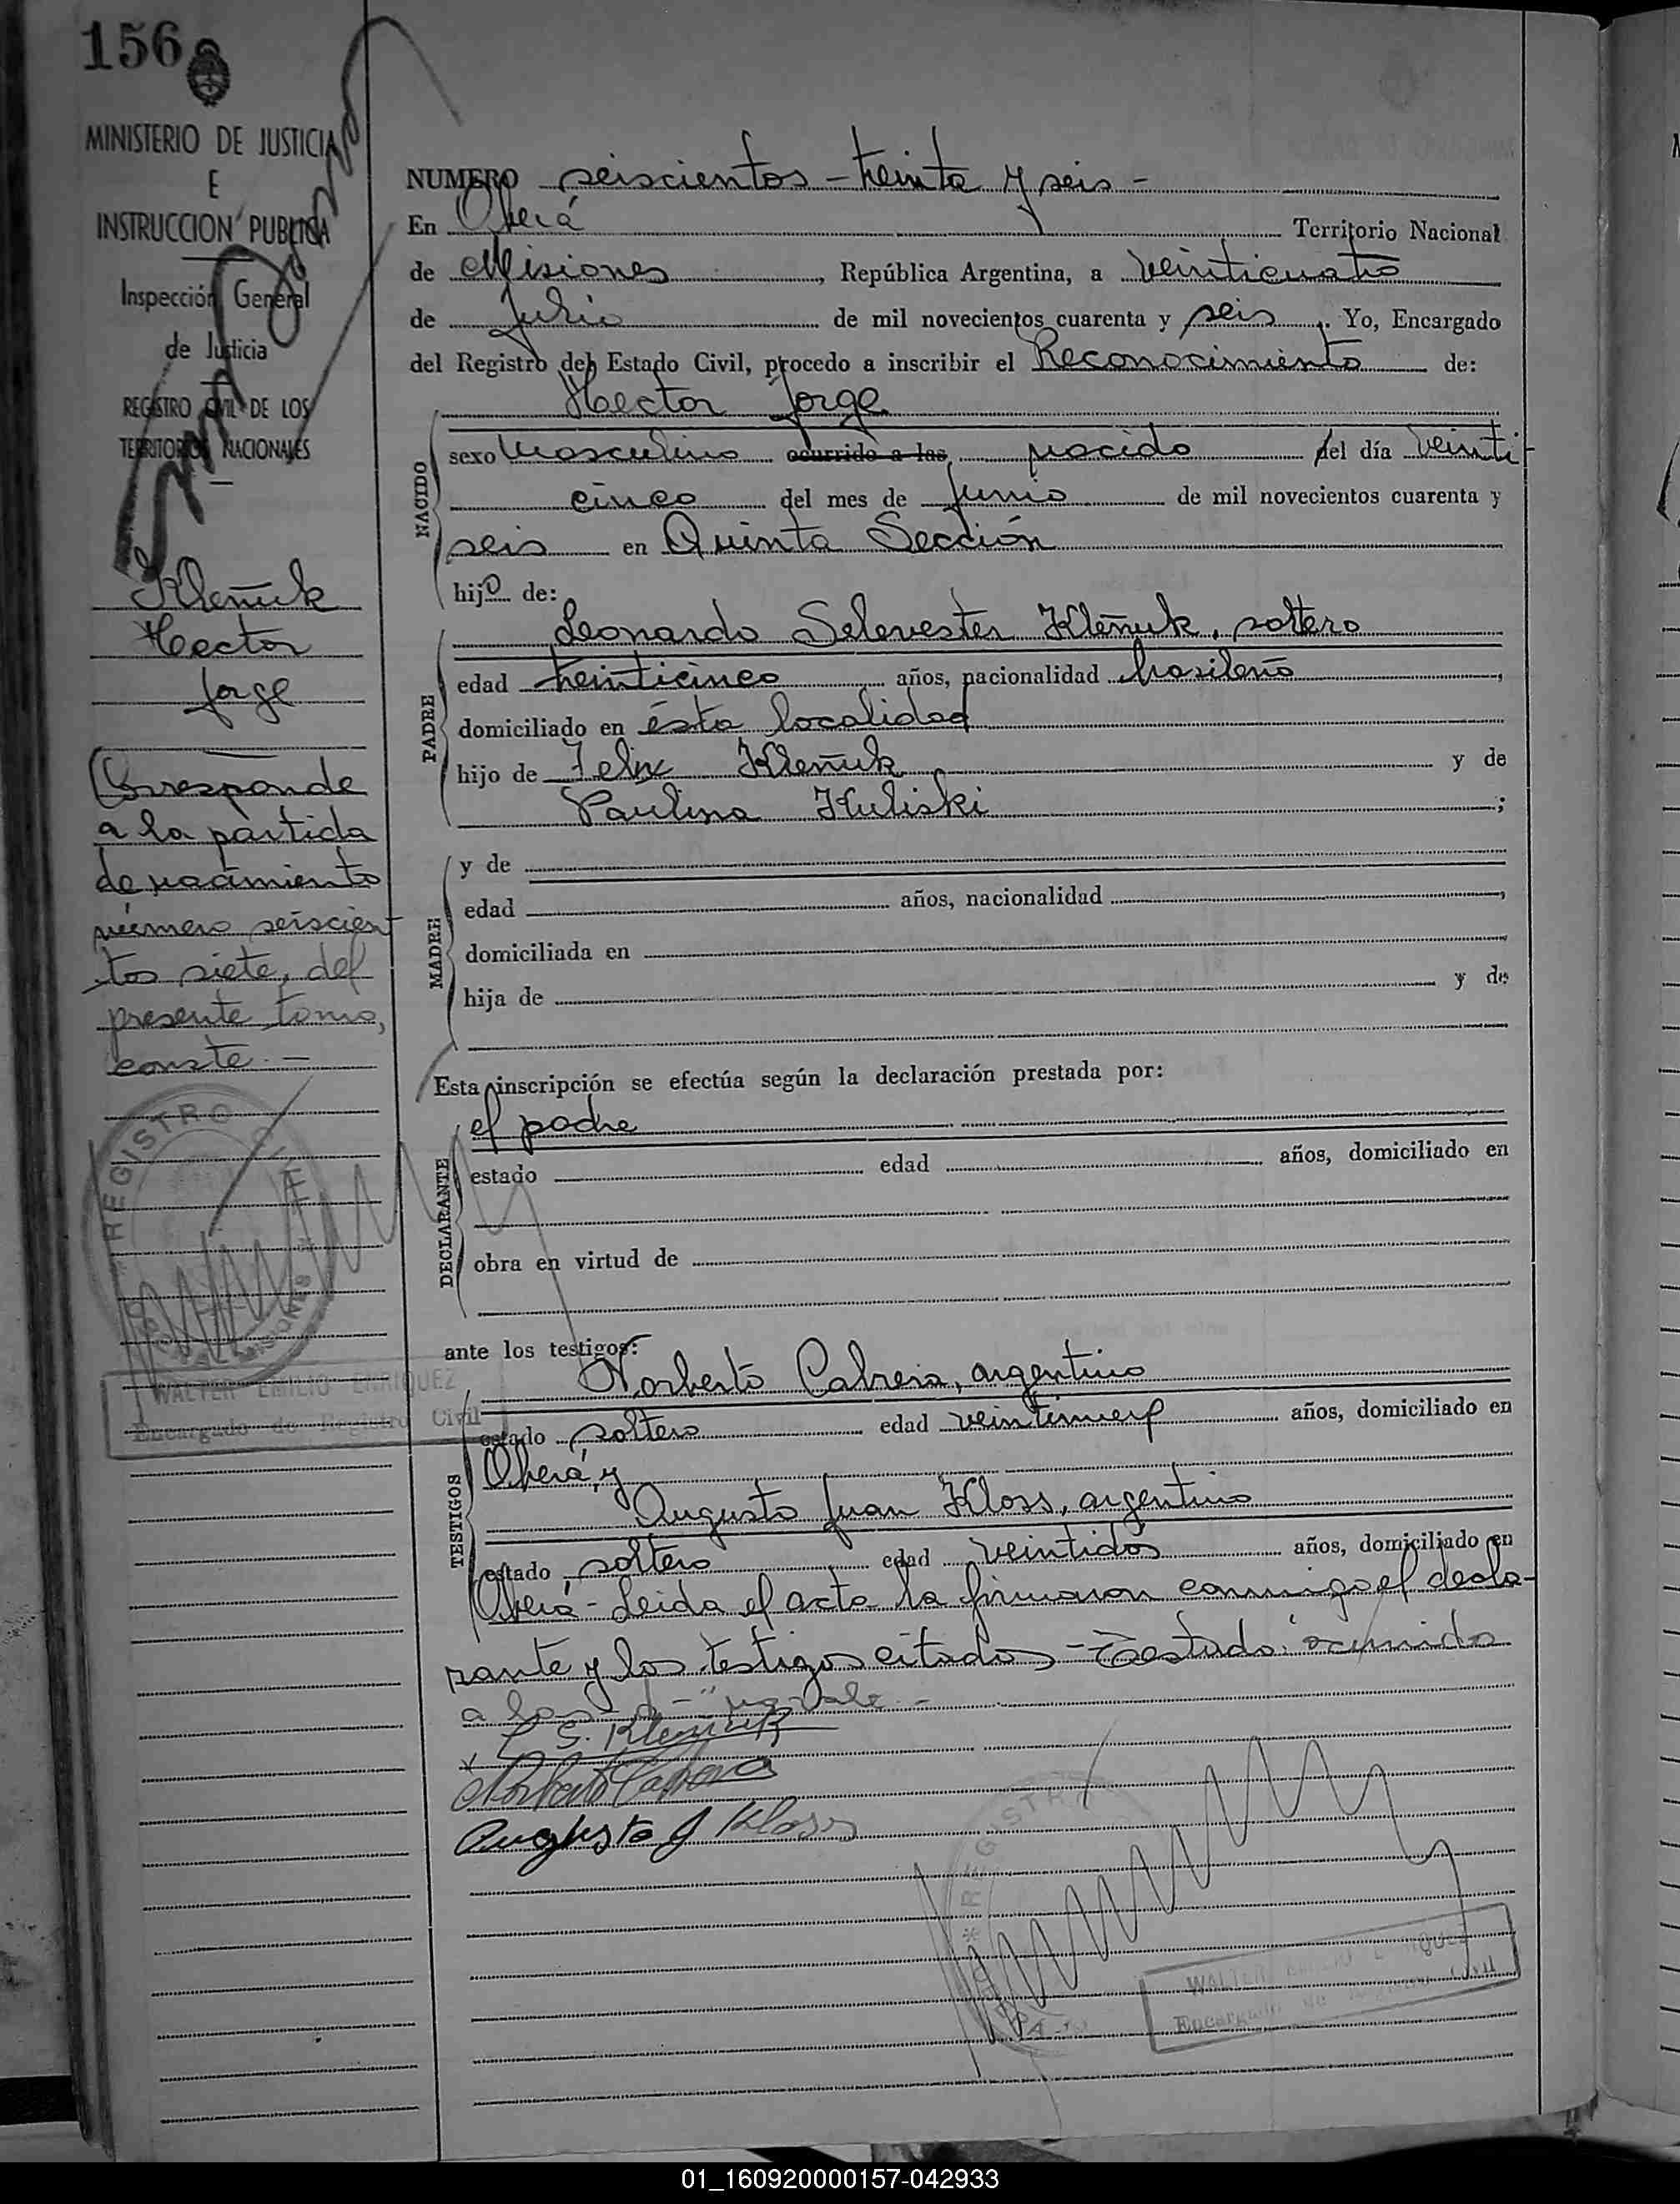 156
MINISTERIO DE JUSTICIA
E
INSTRUCCION PUBLICA
Inspección General
de Justicia
REGISTRO CIVIL DE LOS
TERRITORIOS NACIONALES
Kleñuk
Hector
Jorge
Corresponde
a la partida
de nacimiento
número seiscien
tos siete, del
presente tomo,
conste. —
REGISTRO CIVIL
WALTER EMILIO ENRIQUEZ
Encargado de Registro Civil
NUMERO seiscientos - treinta y seis -
En Oberá Territorio Nacional
de Misiones, República Argentina, a veinticuatro
de Julio de mil novecientos cuarenta y seis. Yo, Encargado
del Registro del Estado Civil, procedo a inscribir el Reconocimiento de:
Hector Jorge
NACIDO
sexo Masculino ocurrido a las, nacido del día veinti-
cinco del mes de Junio de mil novecientos cuarenta y
seis en Quinta Sección
hijo de:
PADRE
Leonardo Selevester Kleñuk, soltero
edad treinticinco años, nacionalidad brasileño,
domiciliado en ésta localidad
hijo de Felix Kleñuk y de
Paulina Kuliski;
MADRE
y de
edad años, nacionalidad,
domiciliada en
hija de y de
Esta inscripción se efectúa según la declaración prestada por:
DECLARANTE
el padre
estado edad años, domiciliado en
obra en virtud de
ante los testigos:
TESTIGOS
Norberto Cabrera, argentino
estado soltero edad años, domiciliado en
Oberá, y
Augusto Juan Kloss, argentino
estado soltero edad veintidós años, domiciliado en
Oberá - Leida el acta la firmaron conmigo el decla-
rante y los testigos citados - Testado: "ocurrido
a las - d -" no vale. -
L S. Kleñuk
Norberto Cabrera
Augusto J Kloss
REGISTR
WALTER EMILIO ENRIQUEZ
Encargado de Registro Civil
01_160920000157-042933